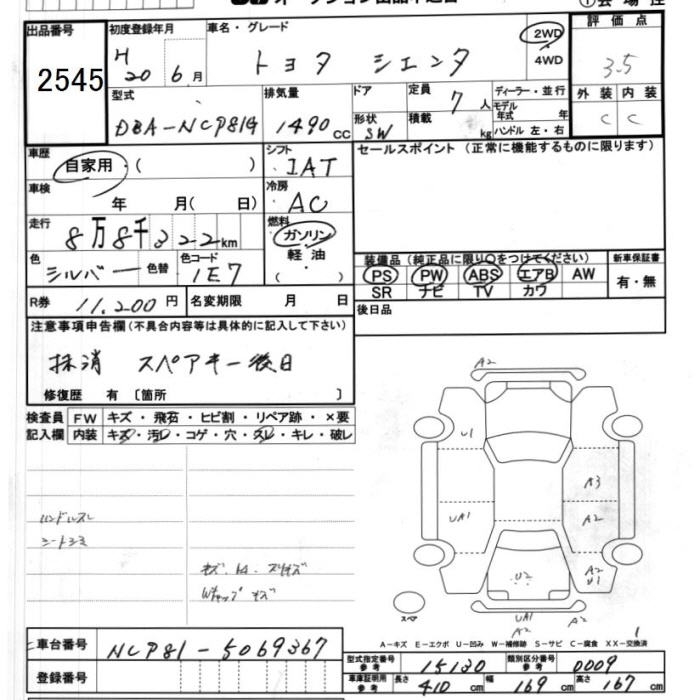 出品番号
2545
初度登録年月
H 20 6月
車名・グレード
トヨタ シエンタ
2WD
4WD
評価点
3.5
型式
DBA-NCP81G
排気量
1490 cc
ドア
形状
SW
定員
7人
積載
kg
ディーラー・並行
モデル
年式 年
ハンドル 左・右
外装 内装
C C
車歴
自家用・( )
車検
年 月( 日)
シフト
IAT
冷房
AC
セールスポイント (正常に機能するものに限ります)
走行
8万8千322km
燃料
ガソリン
軽油
( )
色
シルバー 色替
色コード
1E7
装備品 (純正品に限り○をつけてください)
PS PW ABS エアB AW
SR ナビ TV カワ
新車保証書
有・無
R券 11,200円
名変期限 月 日
後日品
注意事項申告欄(不具合内容等は具体的に記入して下さい)
抹消 スペアキー後日
修復歴 有 〔箇所 〕
検査員
記入欄
FW キズ・飛石・ヒビ割・リペア跡・×要
内装 キズ・汚レ・コゲ・穴・スレ・キレ・破レ
ハンドルスレ
シートシミ
A2
U1
A3
UA1
A2
A2
U1
U2
UA1
A2
A2
スペア
A-キズ E-エクボ U-凹み W-補修跡 S-サビ C-腐食 XX-交換済
車台番号
NCP81-5069367
登録番号
型式指定番号
参考
15130
類別区分番号
参考
0009
車庫証明用
参考
長さ 410cm
幅 169cm
高さ 167cm